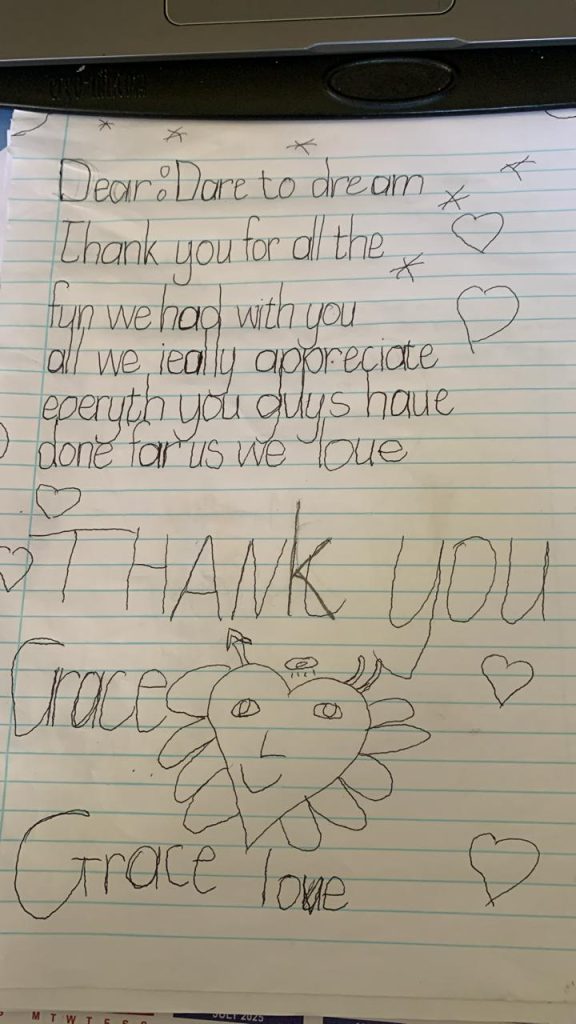 Dear: Dare to dream
Thank you for all the
fun we had with you
all we really appreciate
eperyth you guys have
done for us we love
THANK YOU
Grace
Grace love
M T W T F S S
JULY 2025